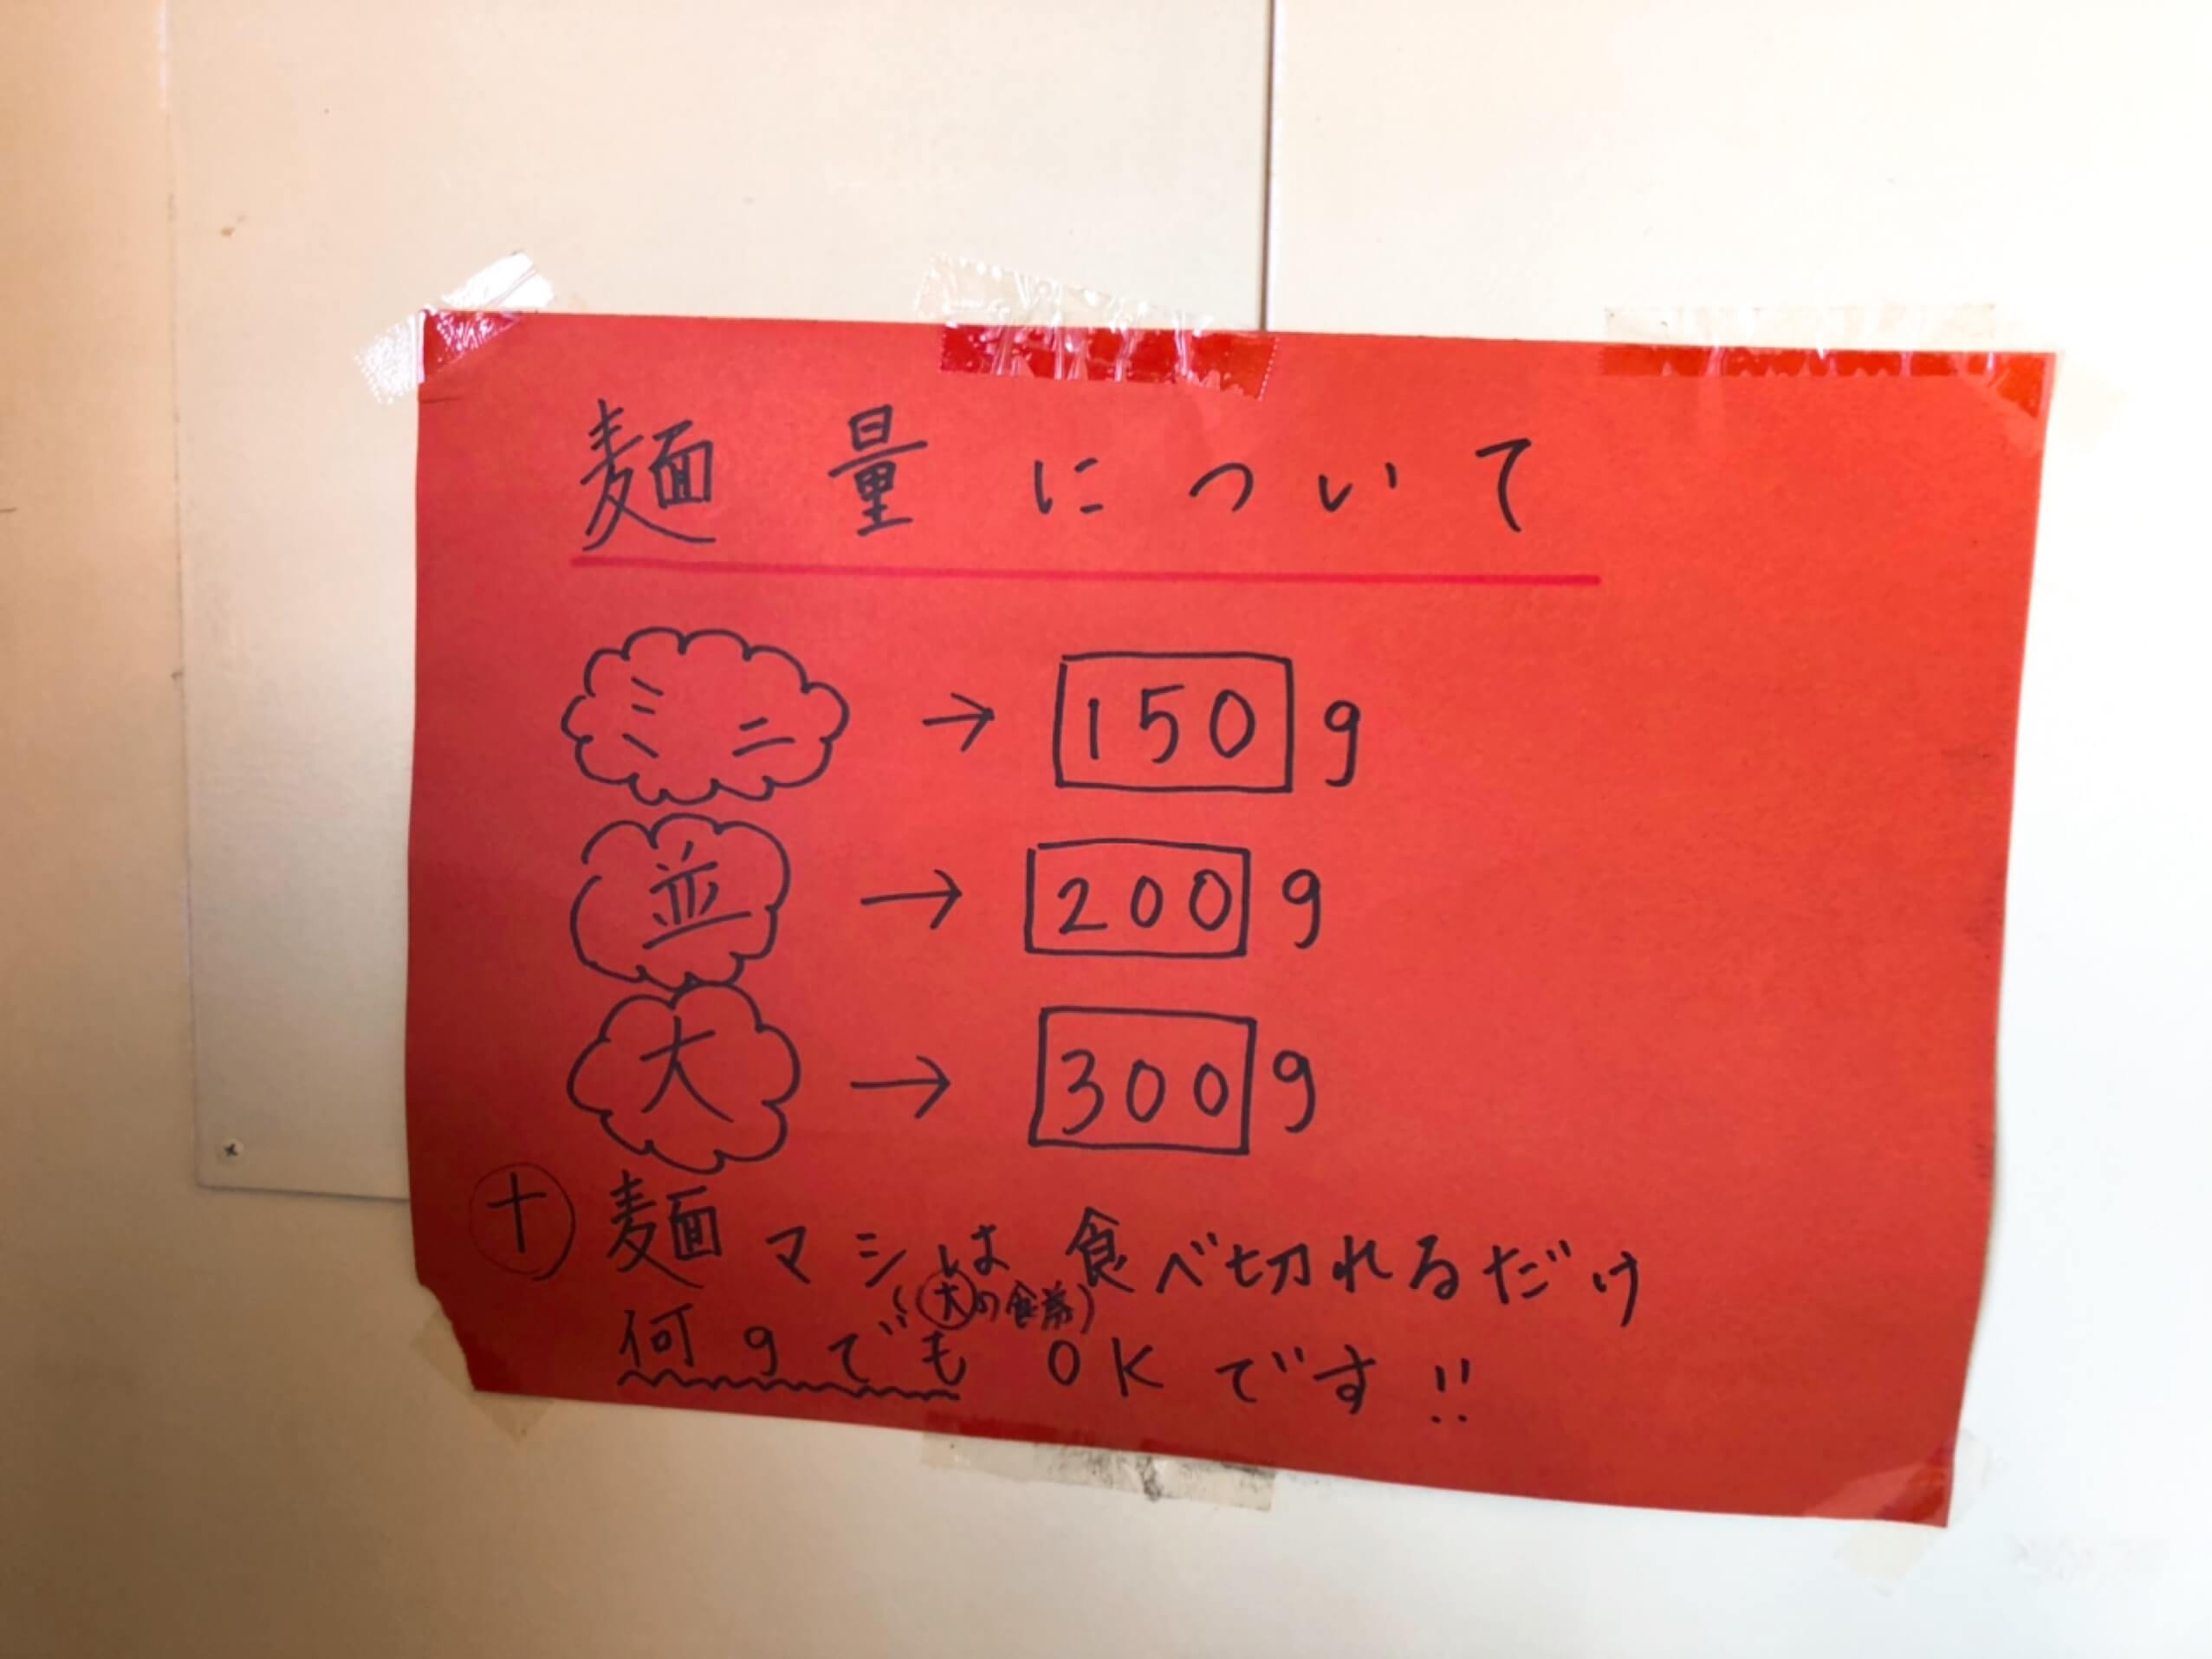 麺量について
ミニ → 150g
並 → 200g
大 → 300g
+ 麺マシは食べ切れるだけ
(大の食券)
何gでも OKです!!